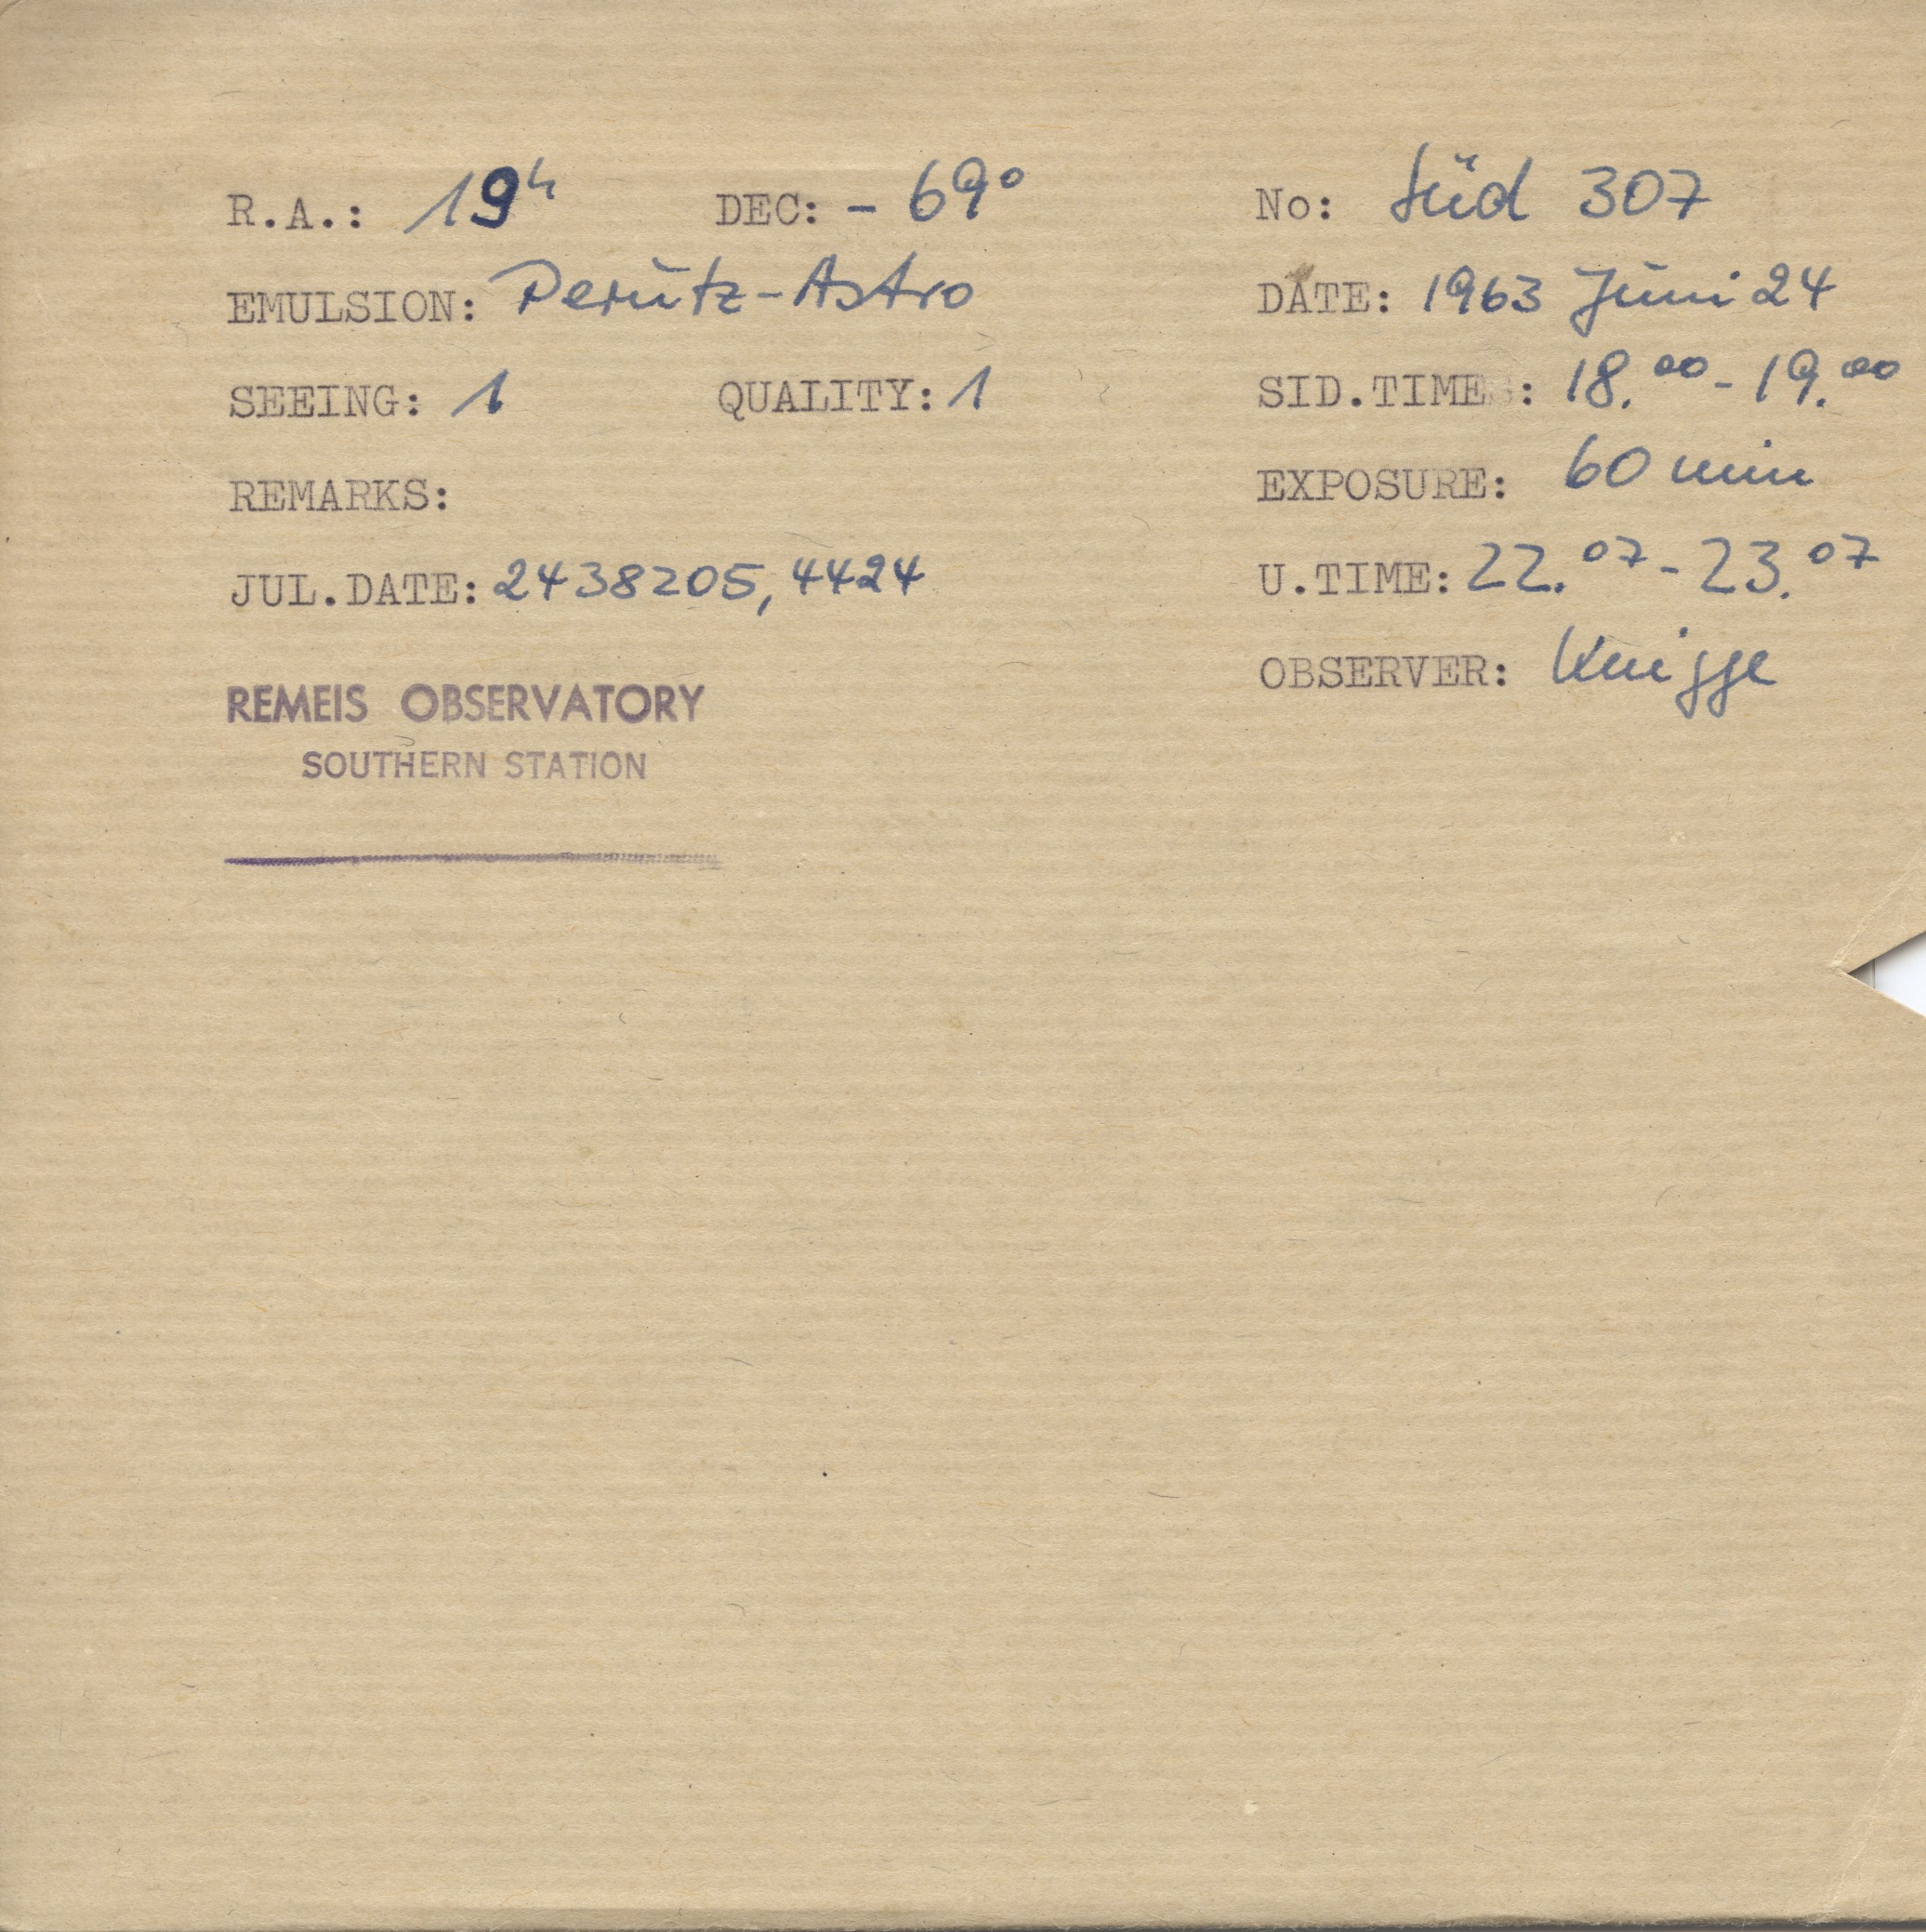 R.A.: 19h DEC: - 69° No: Süd 307
EMULSION: Perutz-Astro DATE: 1963 Juni 24
SEEING: 1 QUALITY: 1 SID.TIME: 18.00 - 19.00
REMARKS: EXPOSURE: 60 min
JUL.DATE: 2438205,4424 U.TIME: 22.07 - 23.07
OBSERVER: Knigge
REMEIS OBSERVATORY
SOUTHERN STATION